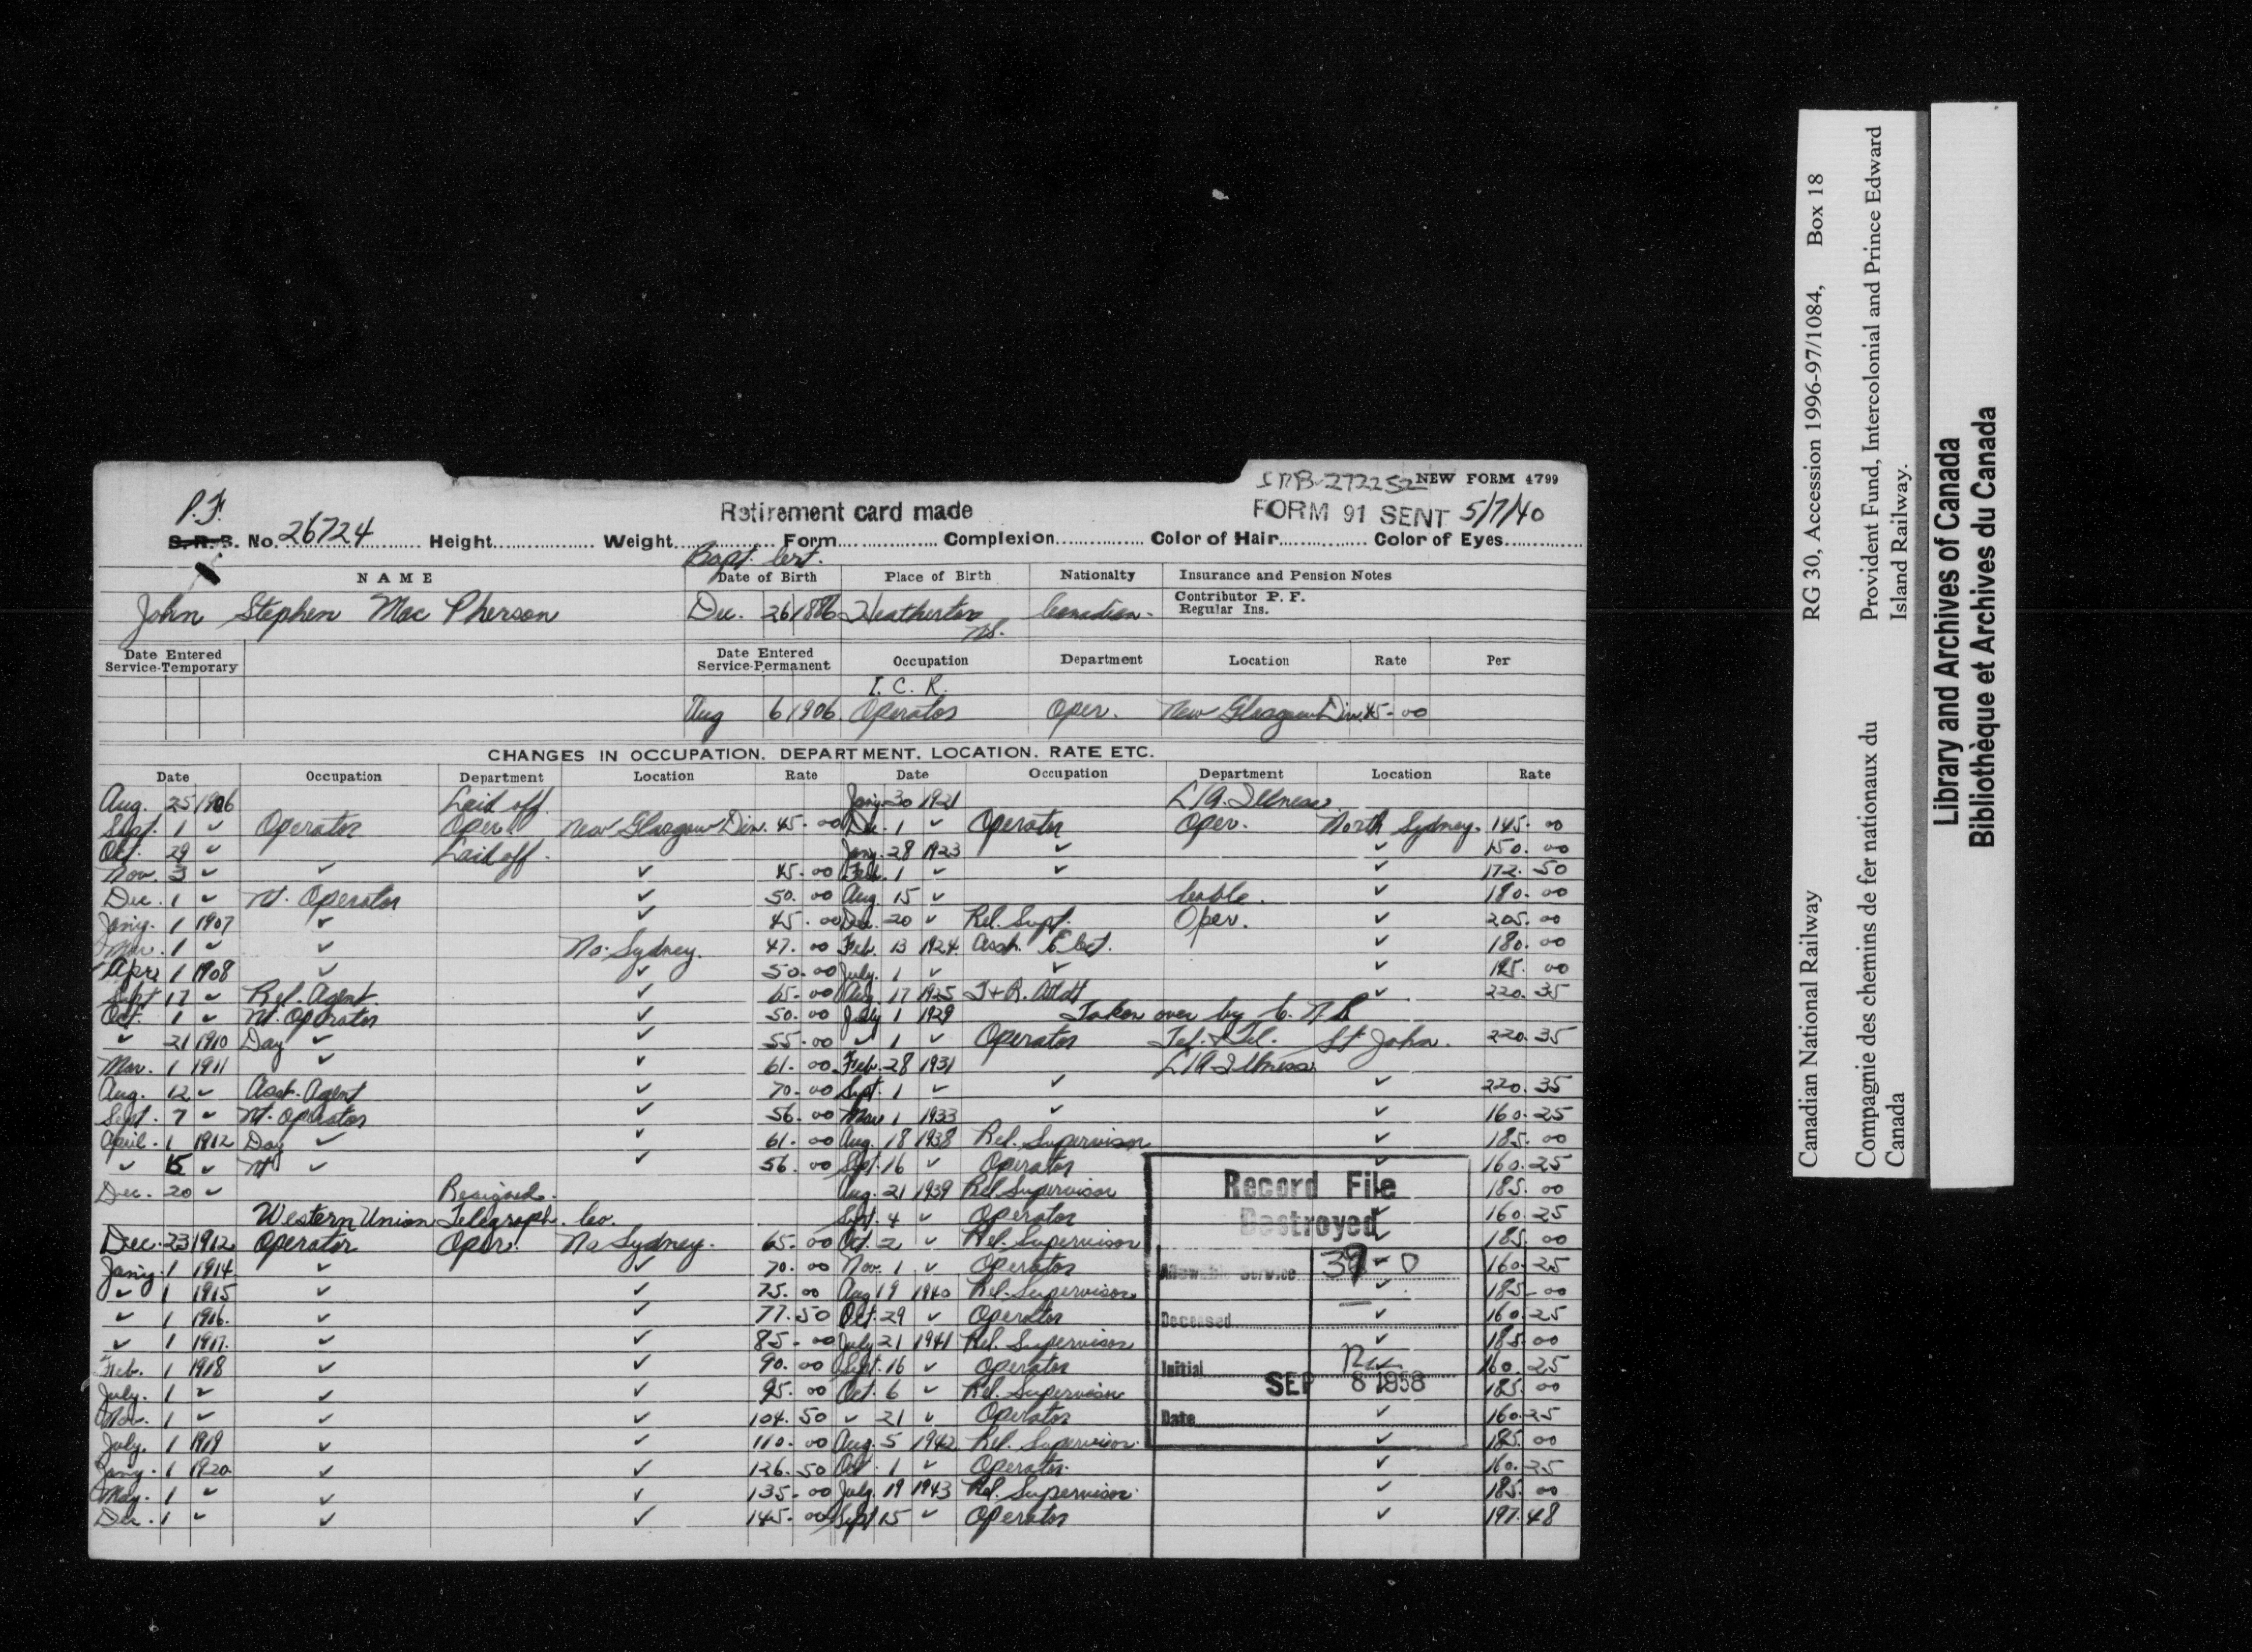 SRB-272252 NEW FORM 4799
P.F. Retirement card made FORM 91 SENT 5/7/40
S.R.B. No. 26724 Height Weight Form Complexion Color of Hair Color of Eyes
Bapt. Cert.
NAME Date of Birth Place of Birth Nationalty Insurance and Pension Notes
Contributor P. F.
John Stephen Mac Pherson Dec. 26 1886 Heatherton Canadian Regular Ins.
N.S.
Date Entered Service-Temporary Date Entered Service-Permanent Occupation Department Location Rate Per
I. C. R.
Aug 6 1906 Operator Oper. New Glasgow Div. 45-00
CHANGES IN OCCUPATION, DEPARTMENT, LOCATION, RATE ETC.
Date Occupation Department Location Rate Date Occupation Department Location Rate
Aug. 25 1906 Laid off. Jany. 30 1921 L/A. Illness.
Sept. 1 ✓ Operator Oper. New Glasgow Div. 45.00 Dec. 1 ✓ Operator Oper. North Sydney. 145.00
Oct. 29 ✓ Laid off. Jany. 28 1923 ✓ ✓ 150.00
Nov. 3 ✓ ✓ ✓ 45.00 Feb. 1 ✓ ✓ ✓ 172.50
Dec. 1 ✓ Nt. Operator ✓ 50.00 Aug. 15 ✓ Cable. ✓ 180.00
Jany. 1 1907 ✓ ✓ 45.00 Dec. 20 ✓ Rel. Supt. Oper. ✓ 205.00
Mar. 1 ✓ ✓ No. Sydney. 47.00 Feb. 13 1924 Asst. ✓ 180.00
Apr. 1 1908 ✓ ✓ 50.00 July. 1 ✓ ✓ ✓ 00
Sept 17 ✓ Rel. Agent. ✓ 65.00 Aug. 17 1925 T+R. Attdt ✓ 220.35
Oct. 1 ✓ Nt. Operator ✓ 50.00 July 1 1929 Taken over by C.N.R
✓ 21 1910 Day ✓ ✓ 55.00 ✓ 1 ✓ Operator Tel. & Tel. St John. 220.35
Mar. 1 1911 ✓ ✓ 61.00 Feb. 28 1931 L/A Illness.
Aug. 12 ✓ Asst. Agent ✓ 70.00 Sept. 1 ✓ ✓ ✓ 220.35
Sept. 7 ✓ Nt. Operator ✓ 56.00 Mar 1 1933 ✓ ✓ 160.25
April. 1 1912 Day ✓ ✓ 61.00 Aug. 18 1938 Rel. Supervisor ✓ 185.00
✓ 15 ✓ Nt ✓ ✓ 56.00 Sept. 16 ✓ Operator ✓ 160.25
Dec. 20 ✓ Resigned. Aug. 21 1939 Rel Supervisor ✓ 185.00
Western Union Telegraph. Co. Sept. 4 ✓ Operator ✓ 160.25
Dec. 23 1912 Operator Oper. No Sydney. 65.00 Oct. 2 ✓ Rel. Supervisor ✓ 185.00
Jany. 1 1914 ✓ ✓ 70.00 Nov. 1 ✓ Operator ✓ 160.25
✓ 1 1915 ✓ ✓ 75.00 Aug 19 1940 Rel. Supervisor ✓ 185.00
✓ 1 1916. ✓ ✓ 77.50 Oct. 29 ✓ Operator ✓ 160.25
✓ 1 1917. ✓ ✓ 85.00 July 21 1941 Rel. Supervisor ✓ 185.00
Feb. 1 1918 ✓ ✓ 90.00 Sept. 16 ✓ Operator ✓ 160.25
July. 1 ✓ ✓ ✓ 95.00 Oct. 6 ✓ Rel. Supervisor ✓ 185.00
Nov. 1 ✓ ✓ ✓ 104.50 ✓ 21 ✓ Operator ✓ 160.25
July. 1 1919 ✓ ✓ 110.00 Aug. 5 1942 Rel. Supervisor. ✓ 185.00
Jany. 1 1920. ✓ ✓ 126.50 Oct. 1 ✓ Operator. ✓ 160.25
May. 1 ✓ ✓ ✓ 135.00 July. 19 1943 Rel. Supervisor. ✓ 185.00
Dec. 1 ✓ ✓ ✓ 145.00 Sept 15 ✓ Operator ✓ 197.48
Record File
Destroyed
Allowable Service 39-0
Deceased
Initial
SEP 8 1958
Date
Canadian National Railway RG 30, Accession 1996-97/1084, Box 18
Compagnie des chemins de fer nationaux du Provident Fund, Intercolonial and Prince Edward
Canada Island Railway.
Library and Archives of Canada
Bibliothèque et Archives du Canada